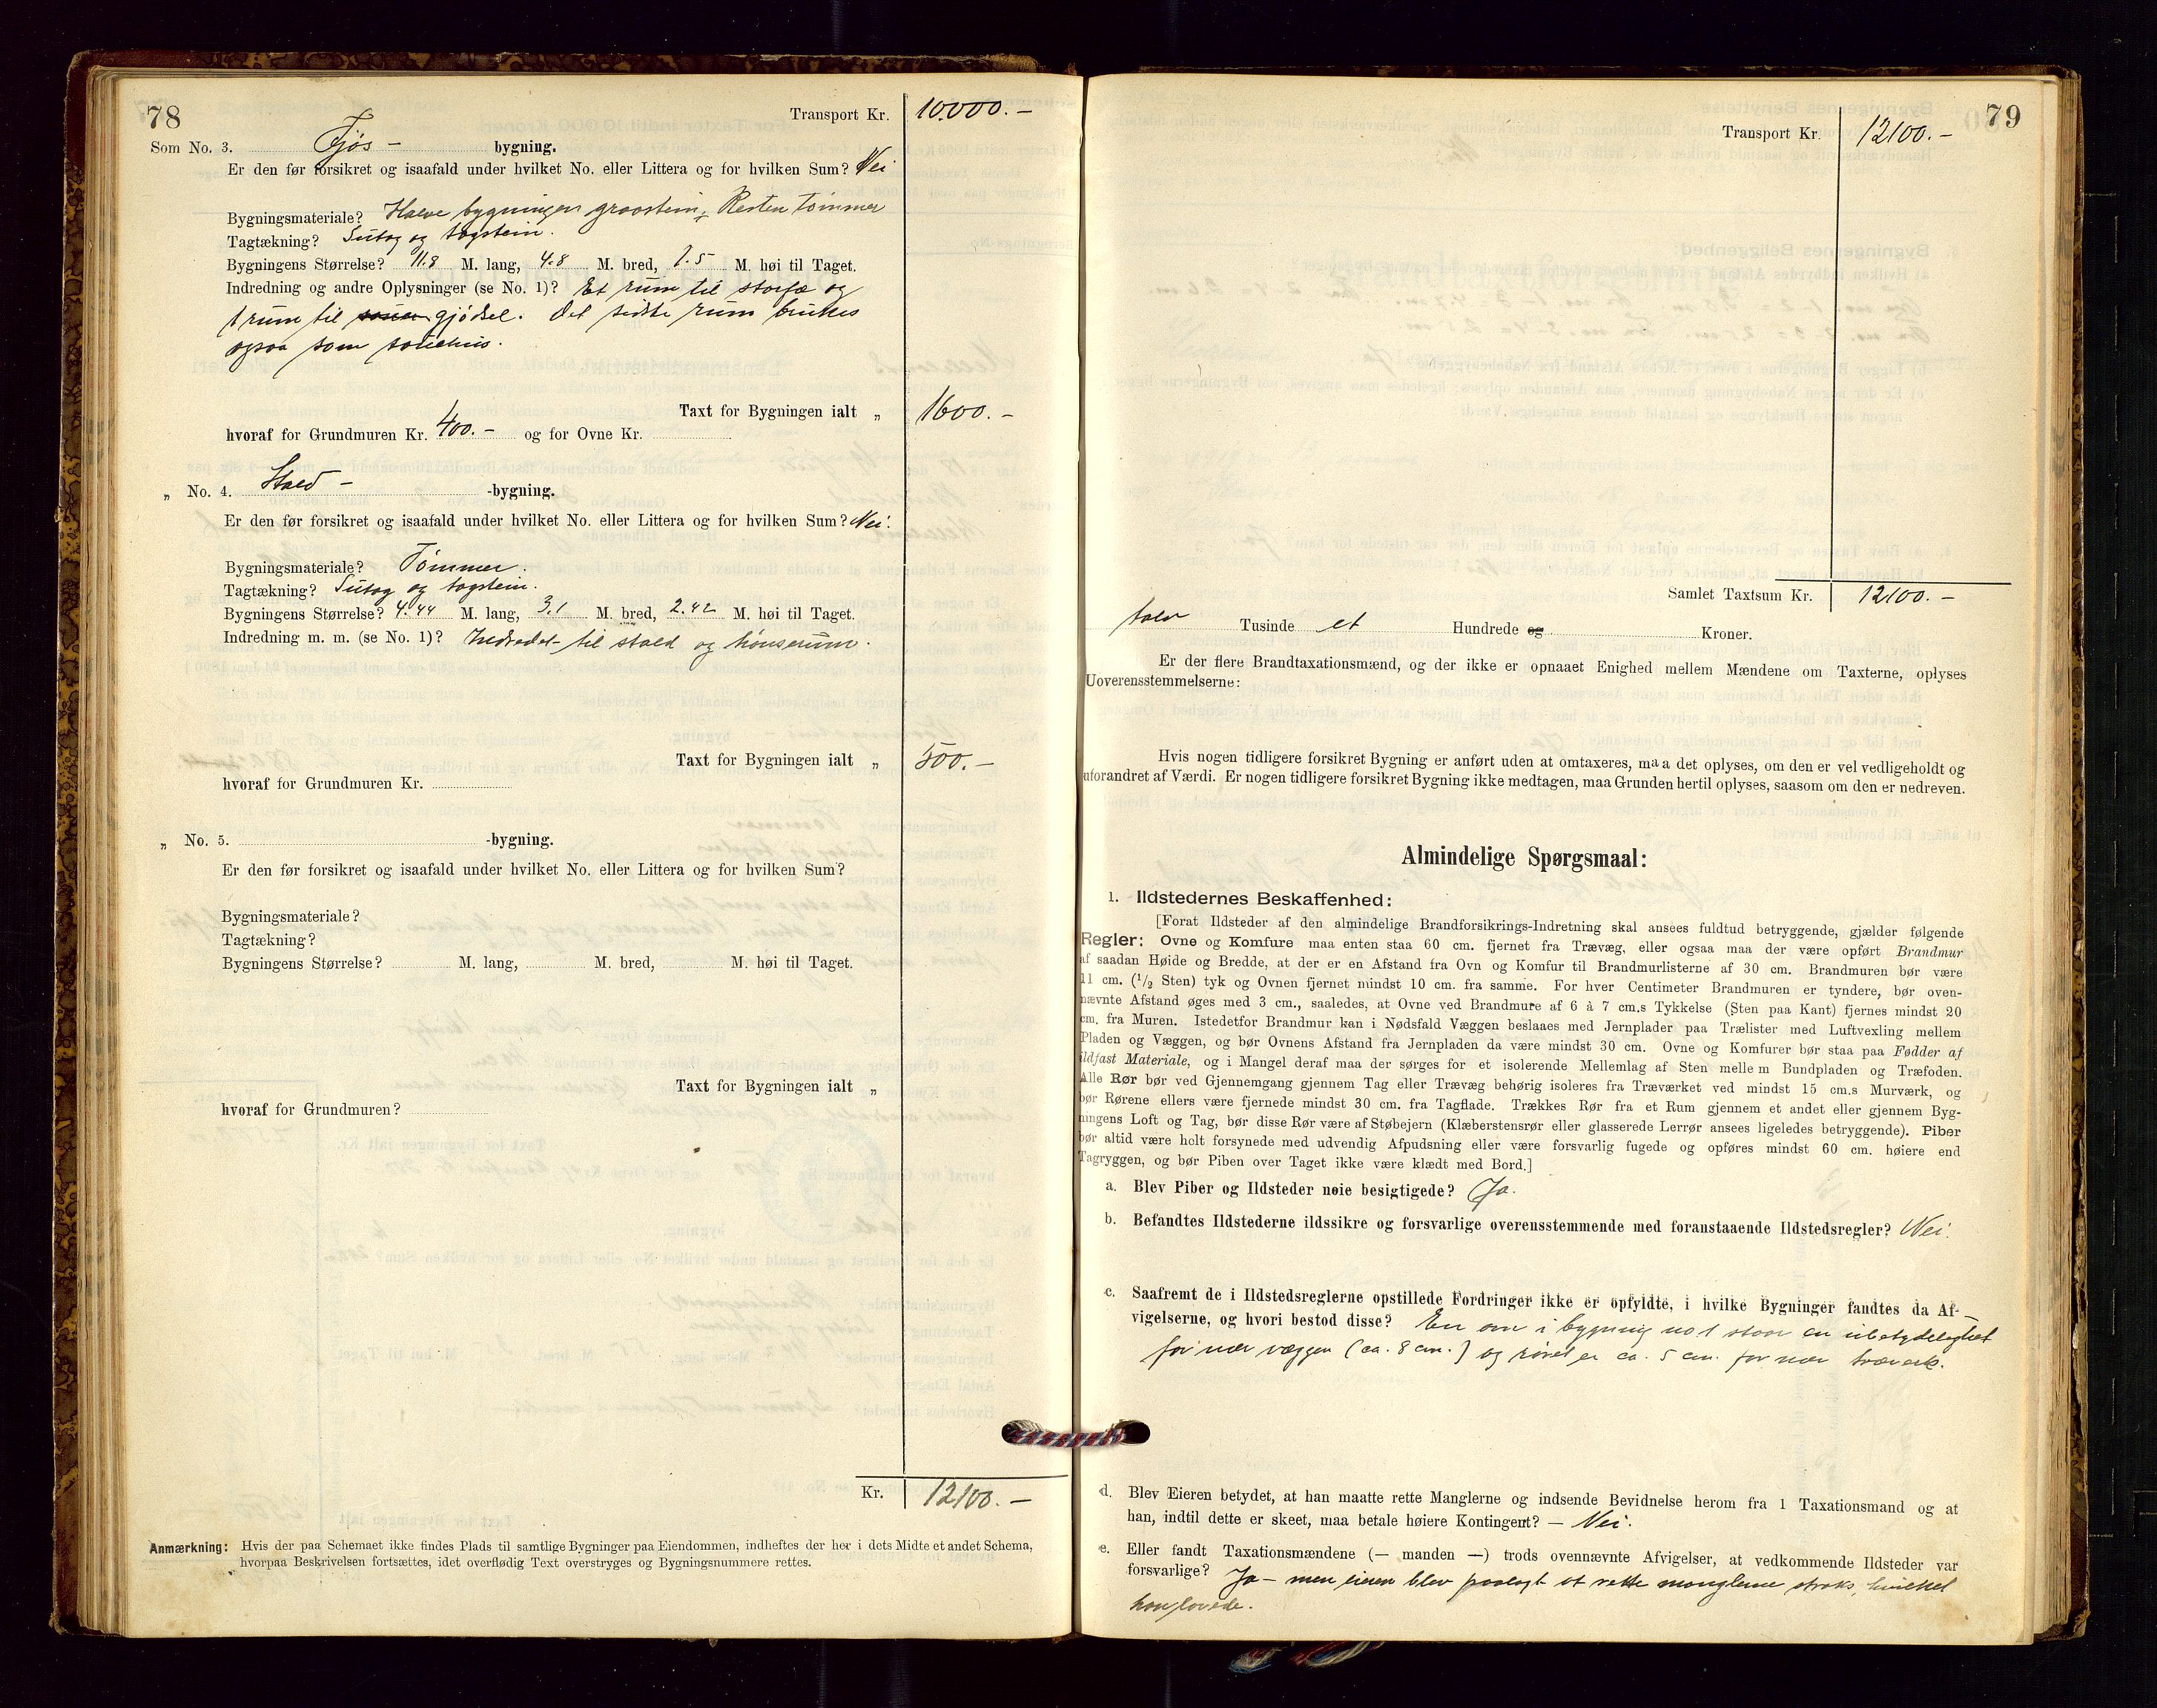 78
Transport Kr. 10.000.-
Som No. 3. Fjøs - bygning.
Er den før forsikret og isaafald under hvilket No. eller Littera og for hvilken Sum? Nei
Bygningsmateriale? Halve bygningen graastein; Resten tømmer
Tagtækning? Sutag og tagstein.
Bygningens Størrelse? 11.8 M. lang, 4.8 M. bred, 2.5 M. høi til Taget.
Indredning og andre Oplysninger (se No. 1)? Et rum til storfæ og
1 rum til gjødsel. Det sidste rum brukes
ogsaa som sauehus.
Taxt for Bygningen ialt „ 1600.-
hvoraf for Grundmuren Kr. 400.- og for Ovne Kr.
„ No. 4. Stald - -bygning.
Er den før forsikret og isaafald under hvilket No. eller Littera og for hvilken Sum? Nei.
Bygningsmateriale? Tømmer.
Tagtækning? Sutag og tagstein.
Bygningens Størrelse? 4.44 M. lang, 3.1 M. bred, 2.42 M. høi til Taget.
Indredning m. m. (se No. 1)? Indredet til stald og hønserum.
Taxt for Bygningen ialt „ 500.-
hvoraf for Grundmuren Kr.
„ No. 5. -bygning.
Er den før forsikret og isaafald under hvilket No. eller Littera og for hvilken Sum?
Bygningsmateriale?
Tagtækning?
Bygningens Størrelse? M. lang, M. bred, M. høi til Taget.
Taxt for Bygningen ialt „
hvoraf for Grundmuren?
Kr. 12100.-
Anmærkning: Hvis der paa Schemaet ikke findes Plads til samtlige Bygninger paa Eiendommen, indheftes der her i dets Midte et andet Schema,
hvorpaa Beskrivelsen fortsættes, idet overflødig Text overstryges og Bygningsnummere rettes.
79
Transport Kr. 12100.-
Samlet Taxtsum Kr. 12100.-
tolv Tusinde et Hundrede og Kroner.
Er der flere Brandtaxationsmænd, og der ikke er opnaaet Enighed mellem Mændene om Taxterne, oplyses
Uoverensstemmelserne:
Hvis nogen tidligere forsikret Bygning er anført uden at omtaxeres, maa det oplyses, om den er vel vedligeholdt og
uforandret af Værdi. Er nogen tidligere forsikret Bygning ikke medtagen, maa Grunden hertil oplyses, saasom om den er nedreven.
Almindelige Spørgsmaal:
1. Ildstedernes Beskaffenhed:
[Forat Ildsteder af den almindelige Brandforsikrings-Indretning skal ansees fuldtud betryggende, gjælder følgende
Regler: Ovne og Komfure maa enten staa 60 cm. fjernet fra Trævæg, eller ogsaa maa der være opført Brandmur
af saadan Høide og Bredde, at der er en Afstand fra Ovn og Komfur til Brandmurlisterne af 30 cm. Brandmuren bør være
11 cm. (1/2 Sten) tyk og Ovnen fjernet mindst 10 cm. fra samme. For hver Centimeter Brandmuren er tyndere, bør oven-
nævnte Afstand øges med 3 cm., saaledes, at Ovne ved Brandmure af 6 à 7 cm.s Tykkelse (Sten paa Kant) fjernes mindst 20
cm. fra Muren. Istedetfor Brandmur kan i Nødsfald Væggen beslaaes med Jernplader paa Trælister med Luftvexling mellem
Pladen og Væggen, og bør Ovnens Afstand fra Jernpladen da være mindst 30 cm. Ovne og Komfurer bør staa paa Fødder af
ildfast Materiale, og i Mangel deraf maa der sørges for et isolerende Mellemlag af Sten mellem Bundpladen og Træfoden.
Alle Rør bør ved Gjennemgang gjennem Tag eller Trævæg behørig isoleres fra Træværket ved mindst 15 cm.s Murværk, og
bør Rørene ellers være fjernede mindst 30 cm. fra Tagflade. Trækkes Rør fra et Rum gjennem et andet eller gjennem Byg-
ningens Loft og Tag, bør disse Rør være af Støbejern (Klæberstensrør eller glasserede Lerrør ansees ligeledes betryggende). Piber
bør altid være helt forsynede med udvendig Afpudsning eller være forsvarlig fugede og opføres mindst 60 cm. høiere end
Tagryggen, og bør Piben over Taget ikke være klædt med Bord.]
a. Blev Piber og Ildsteder nøie besigtigede? Ja.
b. Befandtes Ildstederne ildssikre og forsvarlige overensstemmende med foranstaaende Ildstedsregler? Nei.
c. Saafremt de i Ildstedsreglerne opstillede Fordringer ikke er opfyldte, i hvilke Bygninger fandtes da Af-
vigelserne, og hvori bestod disse? En ovn i bygning no 1 staar en ubetydelighet
for nær væggen (ca. 8 cm.) og røret er ca. 5 cm. for nær træverk.
d. Blev Eieren betydet, at han maatte rette Manglerne og indsende Bevidnelse herom fra 1 Taxationsmand og at
han, indtil dette er skeet, maa betale høiere Kontingent? — Nei.
e. Eller fandt Taxationsmændene (— manden —) trods ovennævnte Afvigelser, at vedkommende Ildsteder var
forsvarlige? Ja - men eieren blev paalagt at rette manglene straks, hvilket
han lovede.